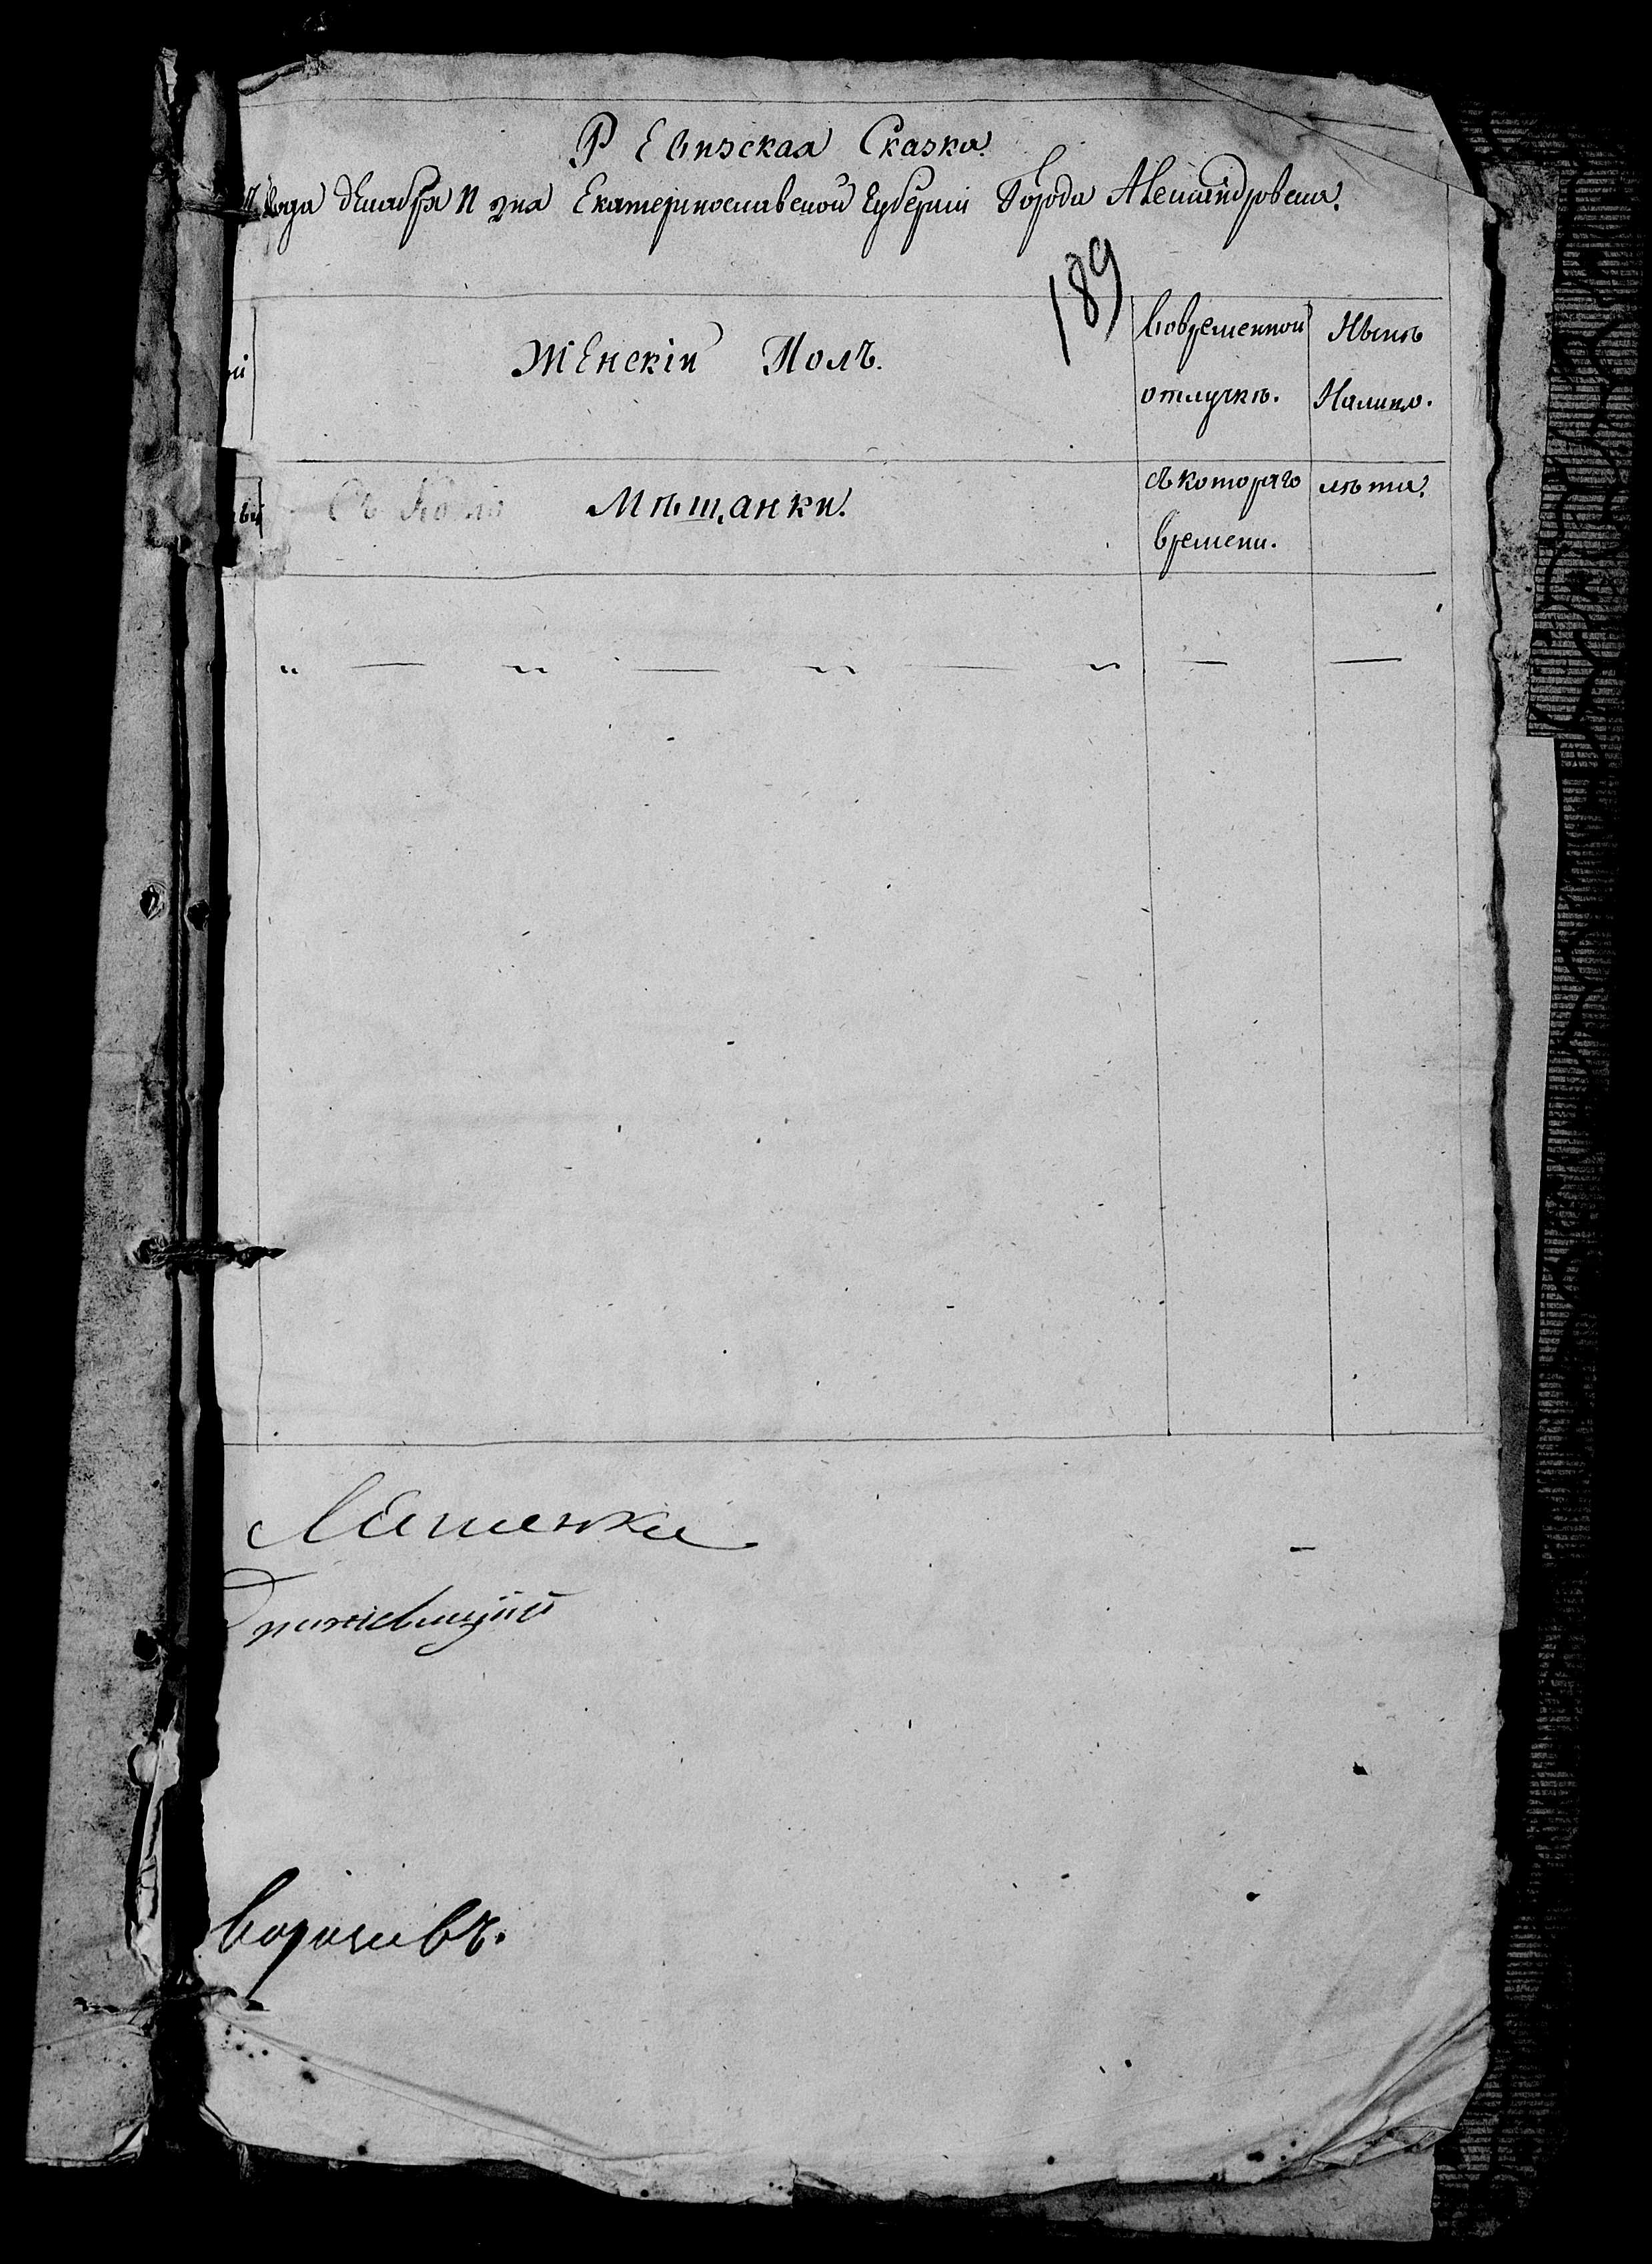 Ревизская Сказка.
года декабря 11 дня Екатеринославской Губернии Города Александровска.
189
Женскій Полъ.
Вовременной
отлучкѣ.
Нынѣ
Налицо.
Мѣщанки.
съ котораго
времени.
лѣта.
" — " — " — " — —